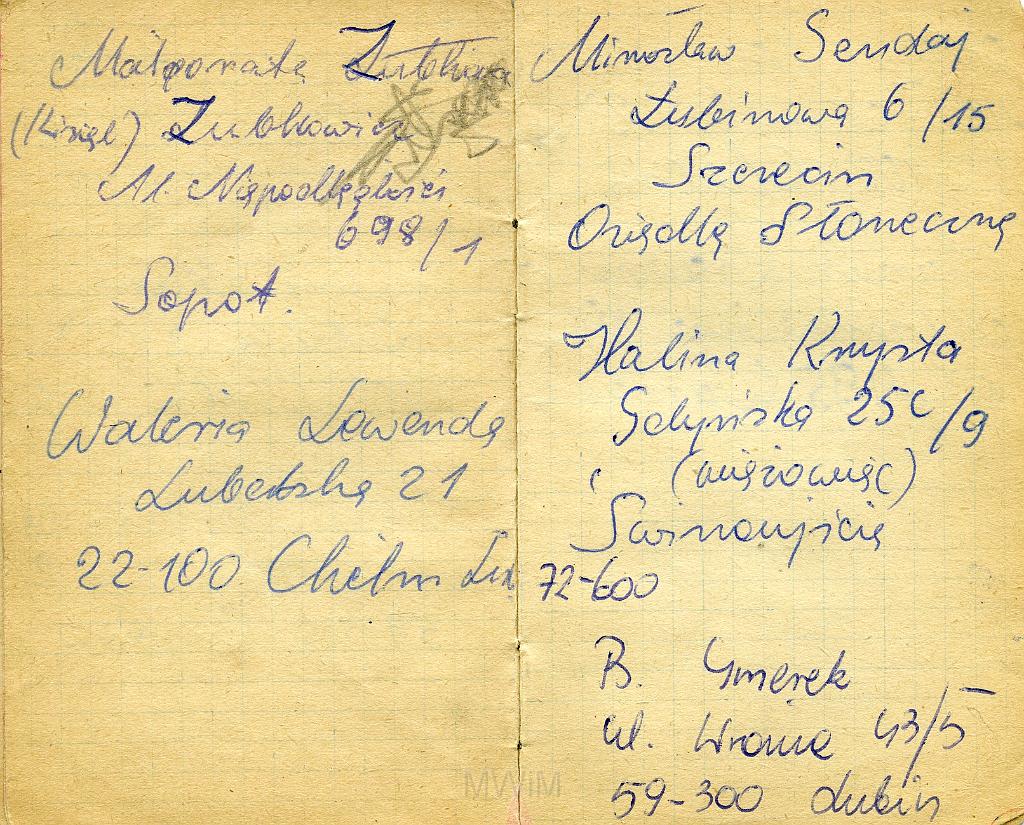 Małgorzata
(Kisiel) Zubkowicz
Al. Niepodległości
698/1
Sopot.
Waleria Lewenda
Lubelska 21
22-100 Chełm Lub
Mirosław Sendaj
Łubinowa 6/15
Szczecin
Osiedle Słoneczne
Halina Kryszta
Gdyńska 25c/9
(wieżowiec)
Świnoujście
72-600
B. Gmerek
ul. Wronia 43/5
59-300 Lubin
MWiM